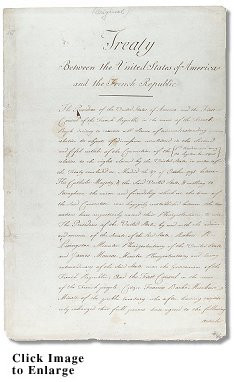 [Original]
Treaty
Between the United States of America
and the French Republic
The President of the United States of America and the First
Consul of the French Republic in the name of the French
People desiring to remove all Source of misunderstanding
relative to objects of discussion mentioned in the Second
and fifth articles of the Convention of the
relative to the rights claimed by the United States in virtue of
the Treaty concluded at Madrid the 27 of October 1795, between
His Catholic Majesty & the Said United States, & willing to
Strengthen the union and friendship which at the time of
the Said Convention was happily reestablished between the two
nations have respectively named their Plenipotentiaries to wit
The President of the United States, by and with the advice
and consent of the Senate of the Said States; Robert R.
Livingston Minister Plenipotentiary of the United States
and James Monroe Minister Plenipotentiary and Envoy
extraordinary of the Said States near the Government of the
French Republic; And the First Consul in the name
of the French people, Citizen Francis Barbé Marbois
Minister of the public treasury who after having respectively
exchanged their full powers have agreed to the following
Articles
Click Image
to Enlarge